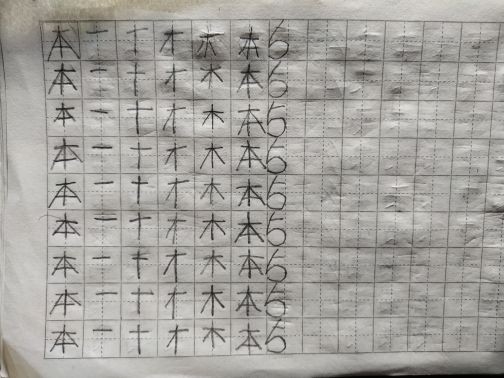 本一十才木本5
本一十才木本5
本一十才木本5
本一十才木本5
本一十才木本5
本一十才木本5
本一十才木本5
本一十才木本5
本一十才木本5